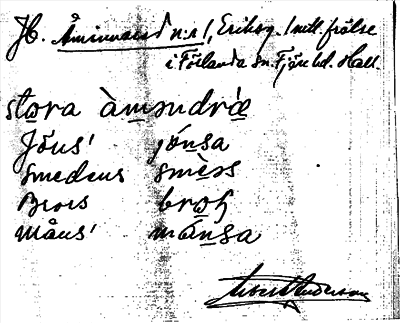 Jfr. Åminnared n:r 1, Eriksg. 1 mtl. frälse
i Förlanda sn. Fjäre hd. Hall.
stora àməndræ
Jöns' jónsa
Smedens smèss
Brors broh
Måns' mánsa